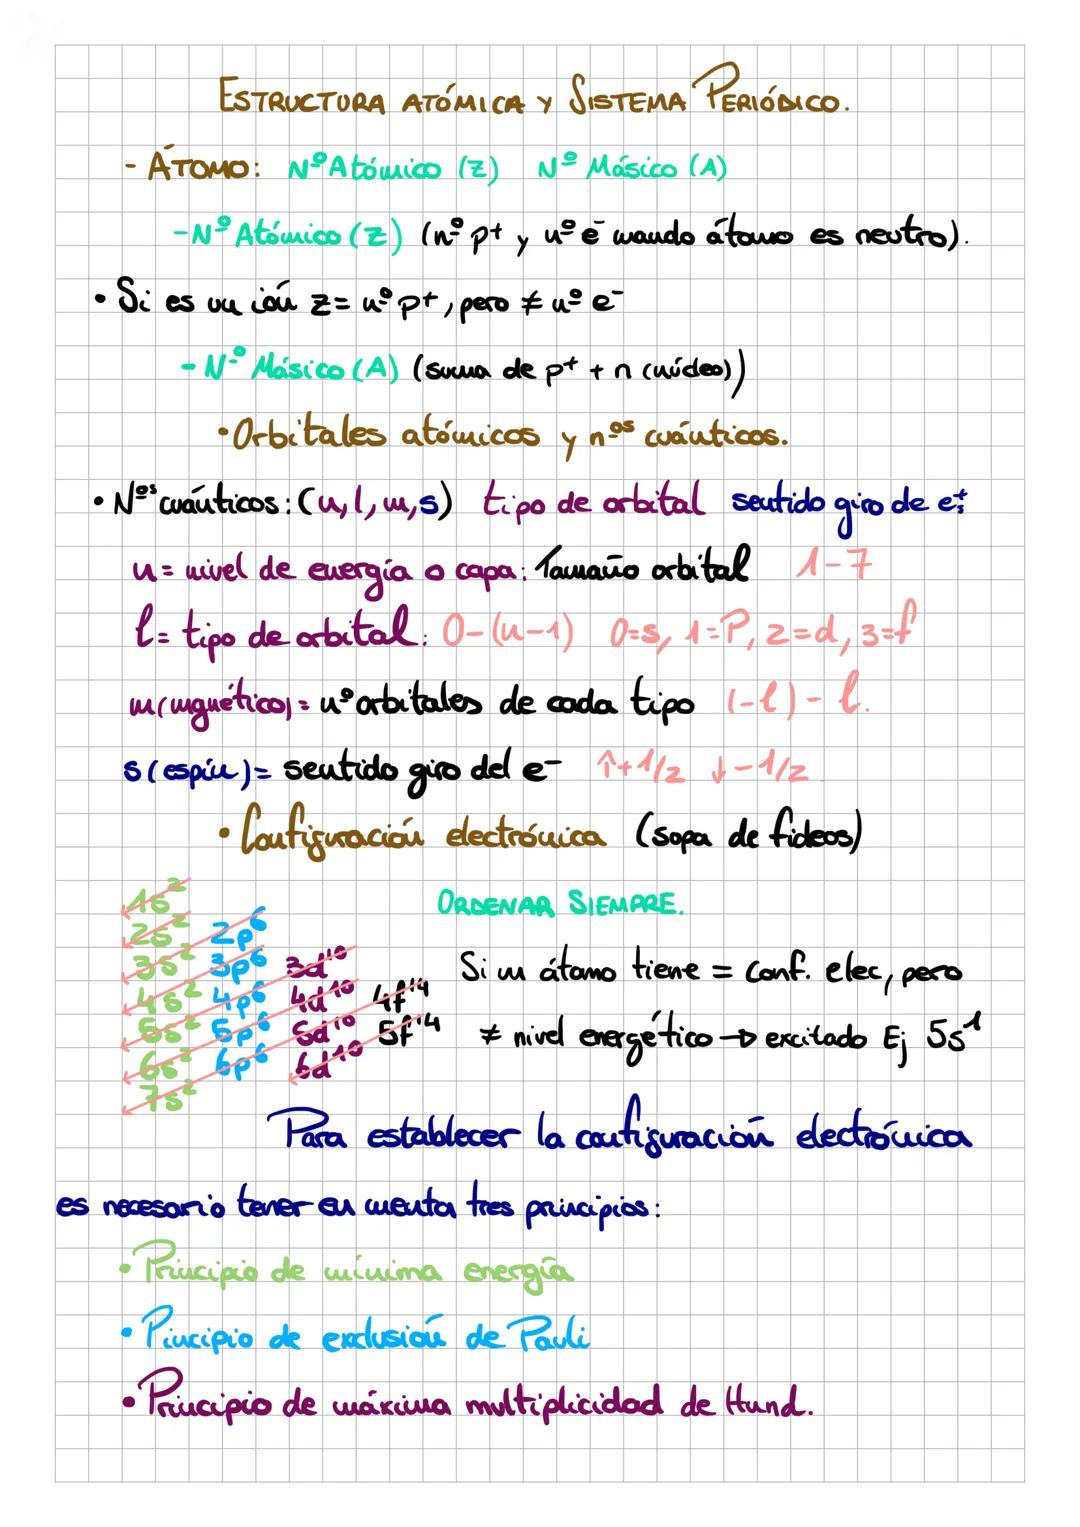 ESTRUCTURA ATÓMICA Y SISTEMA PERIÓDICO.
- ÁTOMO: Nº Atómico (Z) Nº Másico (A)
- Nº Atómico (Z) (nº p+ y nº e- cuando átomo es neutro).
• Si es un ión z= nº p+, pero ≠ nº e-
- Nº Másico (A) (suma de p+ + n (núcleo))
• Orbitales atómicos y nºs cuánticos.
• Nºs cuánticos: (n, l, m, s) tipo de orbital sentido giro de e-:
n = nivel de energía o capa: Tamaño orbital 1-7
l = tipo de orbital: 0-(n-1) 0=s, 1=P, 2=d, 3=f
m(mgnético) = nº orbitales de cada tipo (-l) - l.
s (espín) = sentido giro del e- ↑+1/2 ↓-1/2
• Configuración electrónica (sopa de fideos)
ORDENAR SIEMPRE.
1s²
2s² 2p⁶
3s² 3p⁶ 3d¹⁰
4s² 4p⁶ 4d¹⁰ 4f¹⁴
5s² 5p⁶ 5d¹⁰ 5f¹⁴
6s² 6p⁶ 6d¹⁰
7s²
Si un átomo tiene = conf. elec, pero
≠ nivel energético → excitado Ej 5s¹
Para establecer la configuración electrónica
es necesario tener en cuenta tres principios:
• Principio de mínima energía
• Pincipio de exclusión de Pauli
• Principio de máxima multiplicidad de Hund.